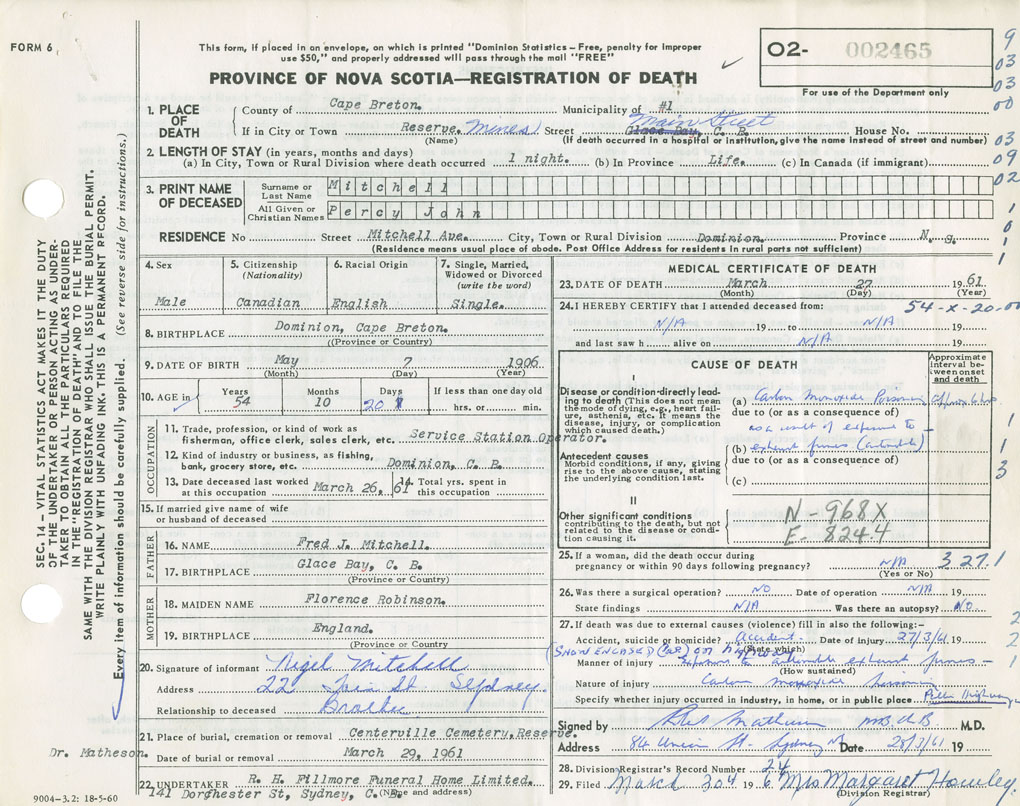 FORM 6
This form, if placed in an envelope, on which is printed "Dominion Statistics – Free, penalty for improper
use $50," and properly addressed will pass through the mail "FREE"
PROVINCE OF NOVA SCOTIA—REGISTRATION OF DEATH
O2- 002465
For use of the Department only
9
03
03
00
03
09
02
1
0
1
1
1. PLACE OF DEATH
County of Cape Breton. Municipality of #1
If in City or Town Reserve. Mines Street Main Street Glace Bay, C. B. House No.
(Name) (If death occurred in a hospital or institution, give the name instead of street and number)
2. LENGTH OF STAY (in years, months and days)
(a) In City, Town or Rural Division where death occurred 1 night. (b) In Province Life. (c) In Canada (if immigrant)
3. PRINT NAME OF DECEASED
Surname or Last Name Mitchell
All Given or Christian Names Percy John
RESIDENCE No Street Mitchell Ave. City, Town or Rural Division Dominion. Province N. S.
(Residence means usual place of abode. Post Office Address for residents in rural parts not sufficient)
4. Sex
Male
5. Citizenship
(Nationality)
Canadian
6. Racial Origin
English
7. Single, Married, Widowed or Divorced
(write the word)
Single.
8. BIRTHPLACE Dominion, Cape Breton.
((Province or Country)
9. DATE OF BIRTH May 7 1906
(Month) (Day) (Year)
10. AGE in
Years 54
Months 10
Days 20
If less than one day old
hrs. or min.
OCCUPATION
11. Trade, profession, or kind of work as
fisherman, office clerk, sales clerk, etc. Service Station Operator.
12. Kind of industry or business, as fishing,
bank, grocery store, etc. Dominion, C. B.
13. Date deceased last worked at this occupation March 26, 61
14. Total yrs. spent in this occupation
15. If married give name of wife
or husband of deceased
FATHER
16. NAME Fred J. Mitchell.
17. BIRTHPLACE Glace Bay, C. B.
(Province or Country)
MOTHER
18. MAIDEN NAME Florence Robinson.
19. BIRTHPLACE England.
(Province or Country)
20. Signature of informant Nigel Mitchell
Address 22 St. Sydney.
Relationship to deceased Brother
21. Place of burial, cremation or removal Centerville Cemetery, Reserve.
Dr. Matheson.
Date of burial or removal March 29, 1961
22. UNDERTAKER R. H. Fillmore Funeral Home Limited.
141 Dorchester St, Sydney, C. B. (Name and address)
9004-3.2: 18-5-60
MEDICAL CERTIFICATE OF DEATH
23. DATE OF DEATH March 27 1961
(Month) (Day) (Year)
24. I HEREBY CERTIFY that I attended deceased from: 54-X-20-00
N/A 19 to N/A 19
and last saw h alive on N/A 19
CAUSE OF DEATH
Approximate interval between onset and death
I
Disease or condition directly leading to death (This does not mean the mode of dying, e.g., heart failure, asthenia, etc. It means the disease, injury, or complication which caused death.)
(a) Carbon Monoxide Poisoning
due to (or as a consequence of)
as a result of exposure to
(b) exhaust fumes (automobile)
due to (or as a consequence of)
(c)
Antecedent causes
Morbid conditions, if any, giving rise to the above cause, stating the underlying condition last.
1
3
II
Other significant conditions
contributing to the death, but not related to the disease or condition causing it.
N - 968X
E - 824.4
25. If a woman, did the death occur during
pregnancy or within 90 days following pregnancy? N/A 327.1
(Yes or No)
26. Was there a surgical operation? NO Date of operation N/A 19
State findings N/A Was there an autopsy? NO
27. If death was due to external causes (violence) fill in also the following:–
Accident, suicide or homicide? Accident. Date of injury 27/3/61 19
(State which)
(SNOW ENCASED CAR) on highway
Manner of injury Exposure to automobile exhaust fumes –
(How sustained)
Nature of injury Carbon monoxide poisoning
Specify whether injury occurred in industry, in home, or in public place Public Highway
2
2
1
Signed by Matheson M.D.
Address 84 Union St. Sydney NS Date 28/3/61 19
28. Division Registrar's Record Number 24
29. Filed March 30 1961 Mrs Margaret Hawley
(Division Registrar)
SEC. 14 – VITAL STATISTICS ACT MAKES IT THE DUTY
OF THE UNDERTAKER OR PERSON ACTING AS UNDER-
TAKER TO OBTAIN ALL THE PARTICULARS REQUIRED
IN THE "REGISTRATION OF DEATH" AND TO FILE THE
SAME WITH THE DIVISION REGISTRAR WHO SHALL ISSUE THE BURIAL PERMIT.
WRITE PLAINLY WITH UNFADING INK. THIS IS A PERMANENT RECORD.
Every item of information should be carefully supplied. (See reverse side for instructions.)